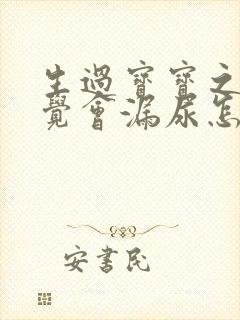 生過寶寶之
覺會漏尿怎
安書民